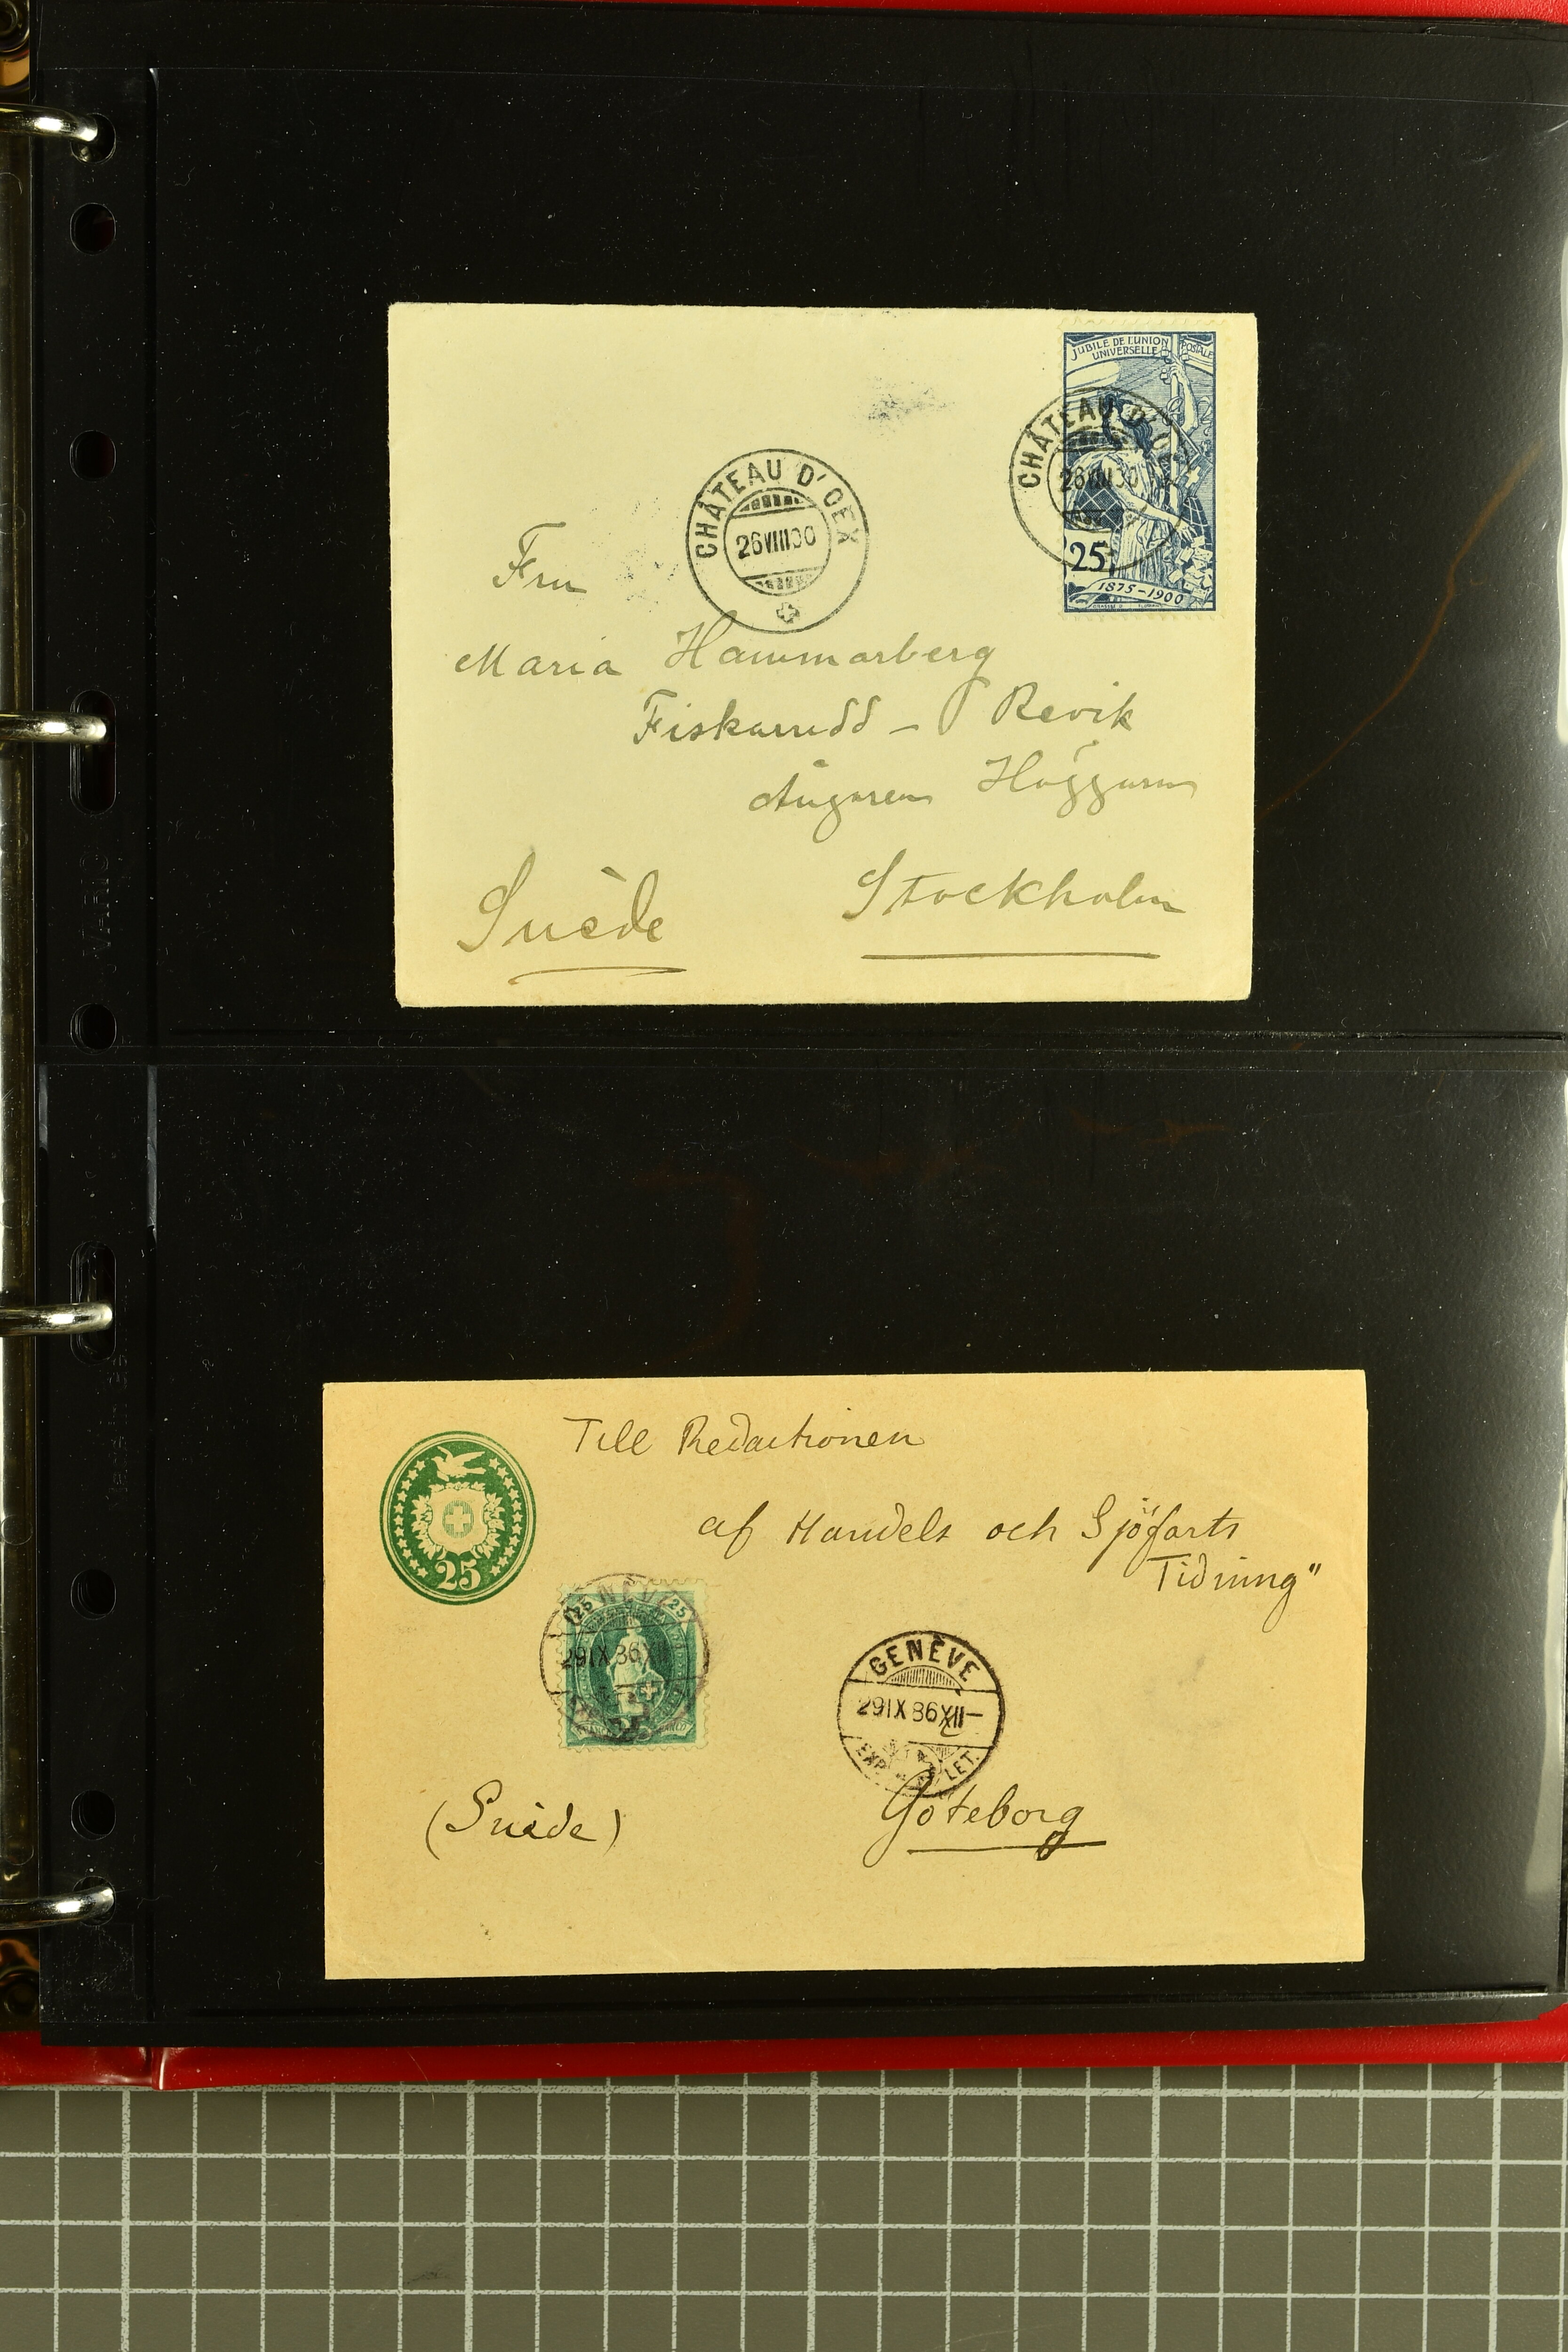 JUBILÉ DE L'UNION POSTALE
UNIVERSELLE
CHÂTEAU D'OEX
26 VIII 00
25
1875-1900
CHÂTEAU D'OEX
26 VIII 00
Fru
Maria Hammarberg
Fiskarudd - Revik
Ångaren Höggarn
Suède Stockholm
VARIO
Till Redactionen
af Handels och Sjöfarts
Tidning"
25
25 25
GENÈVE
29 IX 86 XII
25
GENÈVE
29 IX 86 XII-
EXP. LET.
(Suède) Göteborg